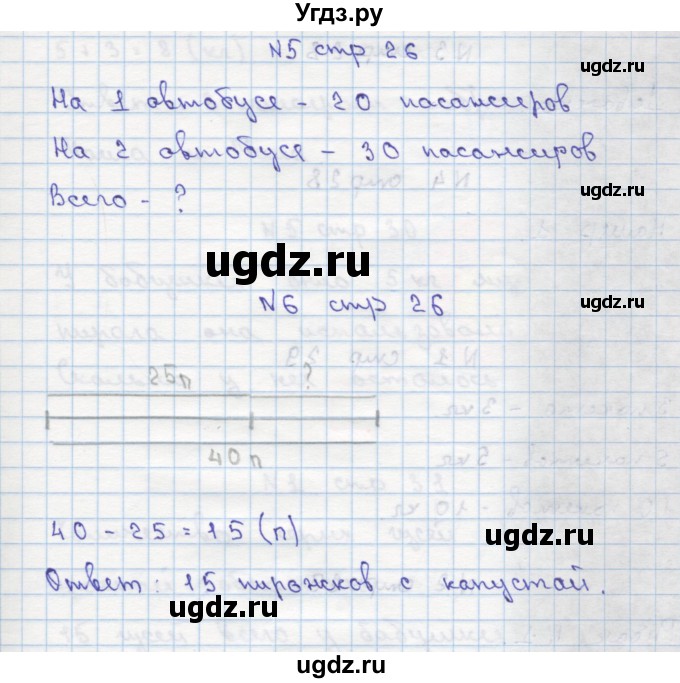 Угдз.ру
N5 стр 26
ugdz.ru
На 1 автобусе - 20 пасансиров
ugdz.ru
На 2 автобусе - 30 пасансиров
ugdz.ru
Всего - ?
ugdz.ru
ugdz.ru
N6 стр 26
25п ?
40 п
ugdz.ru
40 - 25 = 15 (п)
ugdz.ru
Ответ: 15 пирожков с капустай.
ugdz.ru
ugdz.ru
ugdz.ru